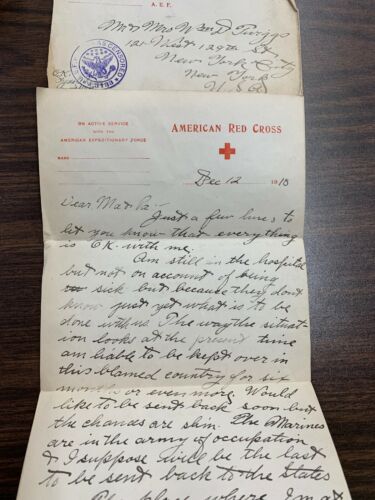 A. E. F.
Mr & Mrs Wm D Triggs
121 West 129th St
New York City
New York
U. S. A
CENSORED
O.K.
ON ACTIVE SERVICE
WITH THE
AMERICAN EXPEDITIONARY FORCE
NAME
AMERICAN RED CROSS
Dec 12 1918
Dear Ma & Pa -
Just a few lines to
let you know that everything
is OK with me.
Am still in the hospital
but not on account of being
sick but because they dont
know just yet what is to be
done with us. The way the situat-
ion looks at the present time
am liable to be kept over in
this blamed country for six
months or even more. Would
like to be sent back soon but
the chances are slim. The Marines
are in the army of occupation
& I suppose will be the last
to be sent back to the States
The place where I'm at